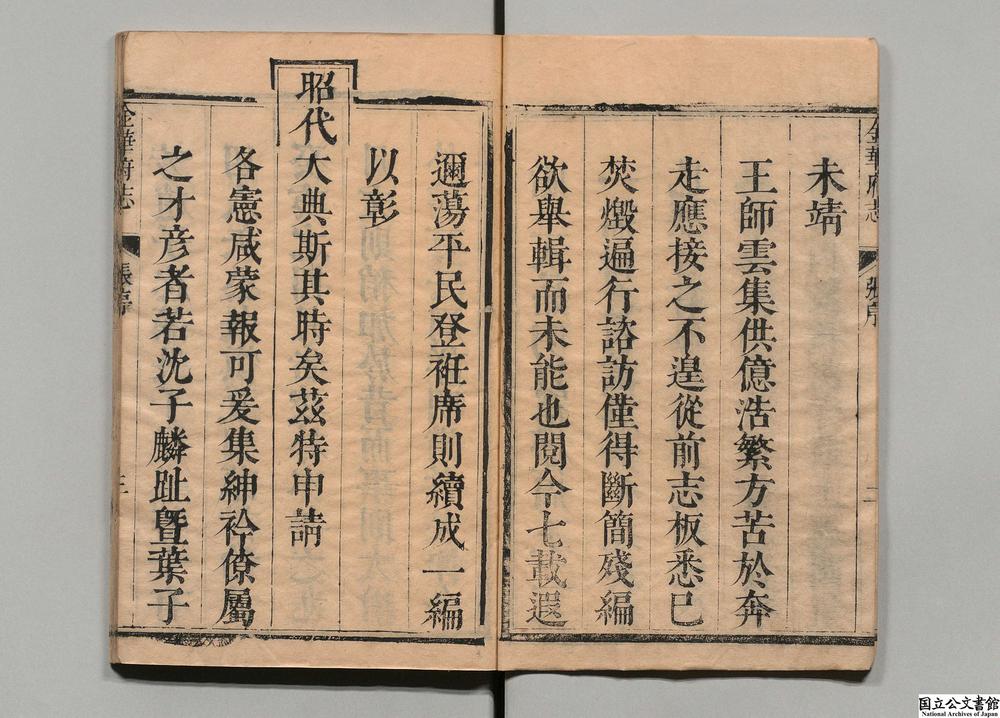 金華府志
張序
二
未靖
王師雲集供億浩繁方苦於奔
走應接之不遑從前志板悉已
焚燬遍行諮訪僅得斷簡殘編
欲舉輯而未能也閱今七載遐
邇蕩平民登袵席則續成一編
以彰
昭代大典斯其時矣茲特申請
各憲咸蒙報可爰集紳衿僚屬
之才彦者若沈子麟趾曁葉子
金華府志
張序
三
国立公文書館
National Archives of Japan